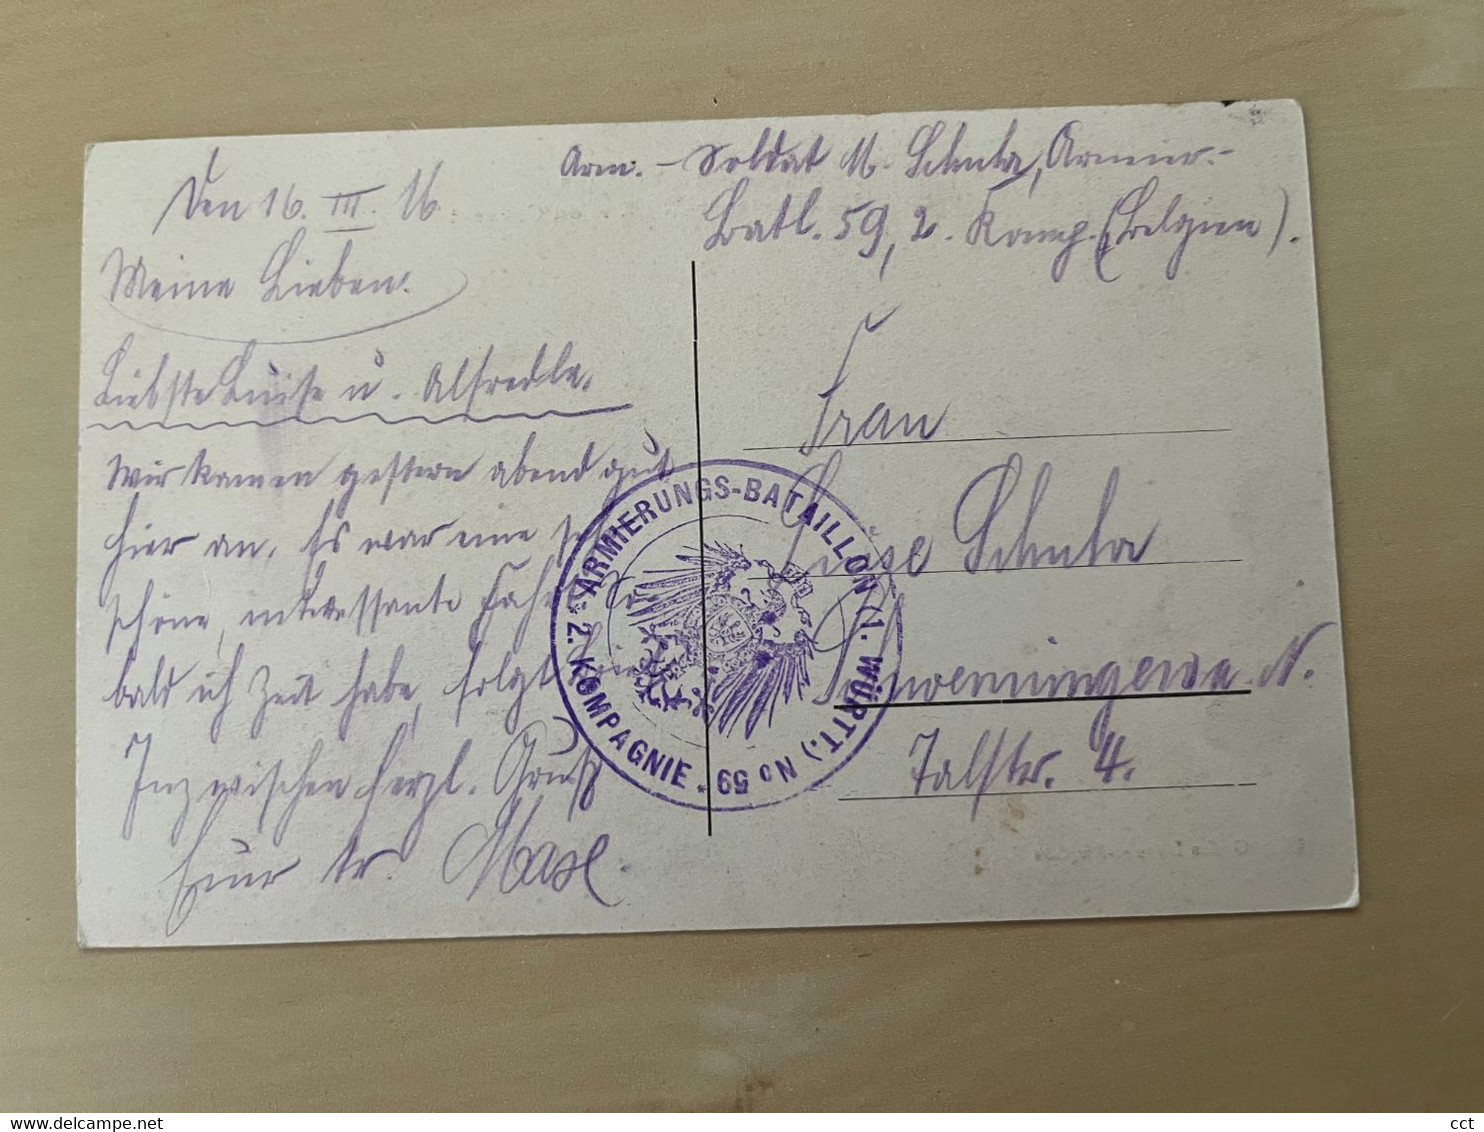 Arm. - Soldat M. Schula, Armier.-
Batl. 59, 2. Komp. (Belgien).
Den 16. III. 16.
Meine Lieben.
Liebste Luise u. Alfredle.
Wir kamen gestern abend gut
hier an. Es war eine
schöne, interessante Fahrt. So
bald ich Zeit habe, folgt
Inzwischen herzl. Gruß
Euer tr.
Frau
Luise Schula
Schwenningen a. N.
Talstr. 4.
2. KOMPAGNIE * ARMIERUNGS-BATAILLON (1. WÜRTT.) No 59 *
www.delcampe.net
cct